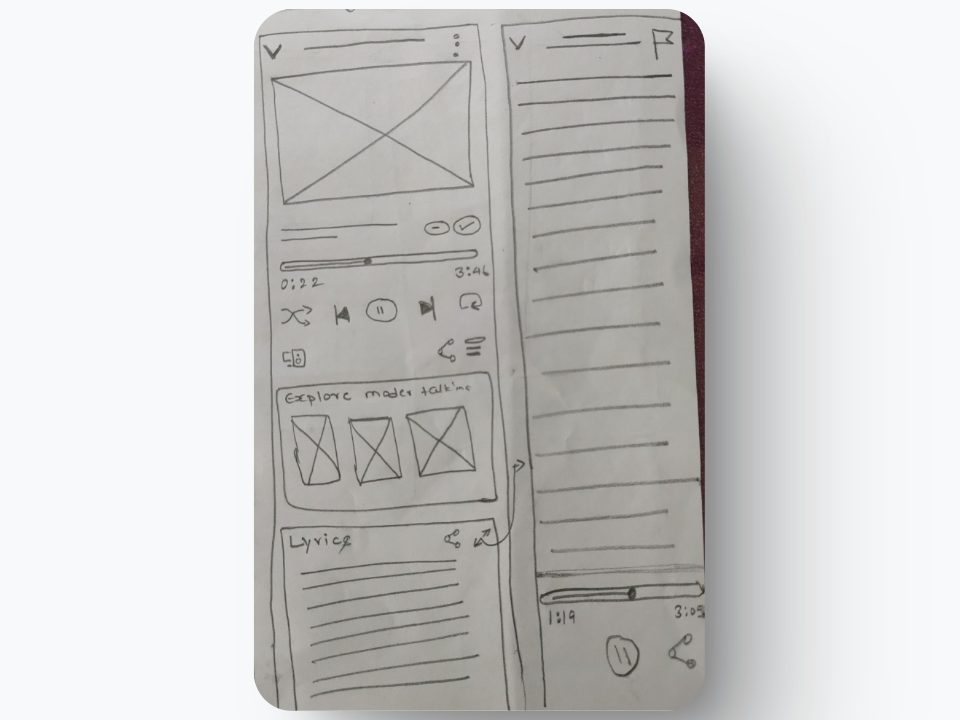 0:22
3:46
Explore moder talking
Lyrics
1:19
3:05